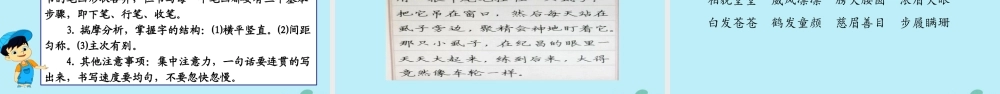 步骤，即下笔、行笔、收笔。
3. 揣摩分析，掌握字的结构：(1)横平竖直。(2)间距
匀称。(3)主次有别。
4. 其他注意事项：集中注意力，一句话要连贯的写
出来，书写速度要均匀，不要忽快忽慢。
把它吊在窗口，然后每天站在
虱子旁边，聚精会神地盯着它。
那只小虱子，在纪昌的眼里一
天天大起来，练到后来，大得
竟然像车轮一样。
白发苍苍 鹤发童颜 慈眉善目 步履蹒珊